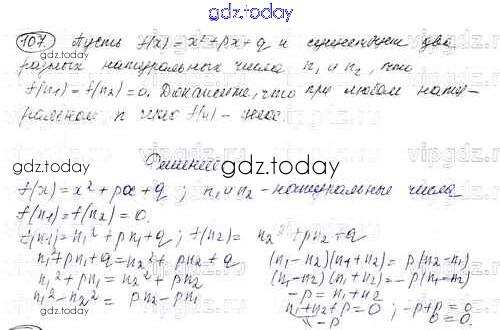 gdz.today
107. Пусть f(x) = x² + px + q и существует два
разных натуральных числа n₁ и n₂, что
f(n₁) = f(n₂) = 0. Докажите, что при любом нату-
ральном n число f(n) -
gdz.today
gdz.today
Решение
f(x) = x² + px + q ; n₁ и n₂ - натуральные числа
f(n₁) = f(n₂) = 0.
f(n₁) = n₁² + pn₁ + q ; f(n₂) = n₂² + pn₂ + q
n₁² + pn₁ + q = n₂² + pn₂ + q
(n₁ - n₂)(n₁ + n₂) = p(n₂ - n₁)
n₁² + pn₁ = n₂² + pn₂
(n₁ - n₂)(n₁ + n₂) = -p(n₁ - n₂)
n₁² - n₂² = pn₂ - pn₁
-p = n₁ + n₂
n₁ + n₂ + p = 0 ; -p + p = 0
-p
0 = 0.
gdz.today
gdz.today